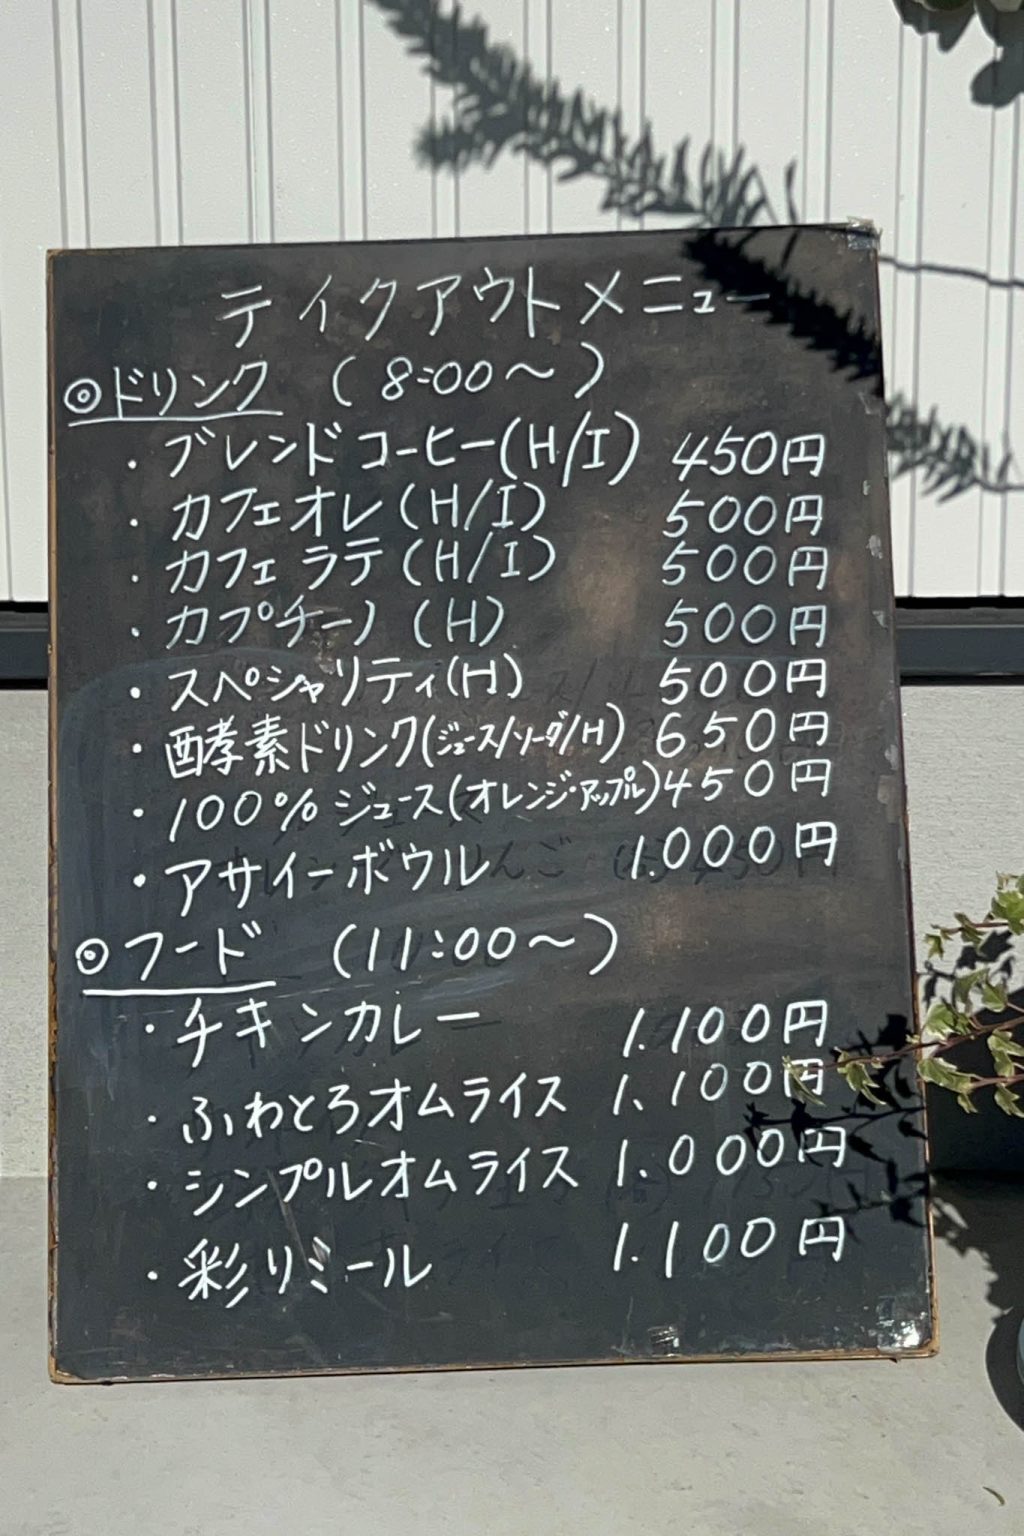 テイクアウトメニュー
◎ドリンク (8:00〜)
・ブレンドコーヒー(H/I) 450円
・カフェオレ(H/I) 500円
・カフェラテ(H/I) 500円
・カプチーノ(H) 500円
・スペシャリティ(H) 500円
・酵素ドリンク(ジュース/ソーダ/H) 650円
・100%ジュース(オレンジ・アップル) 450円
・アサイーボウル 1.000円
◎フード (11:00〜)
・チキンカレー 1.100円
・ふわとろオムライス 1.100円
・シンプルオムライス 1.000円
・彩りミール 1.100円